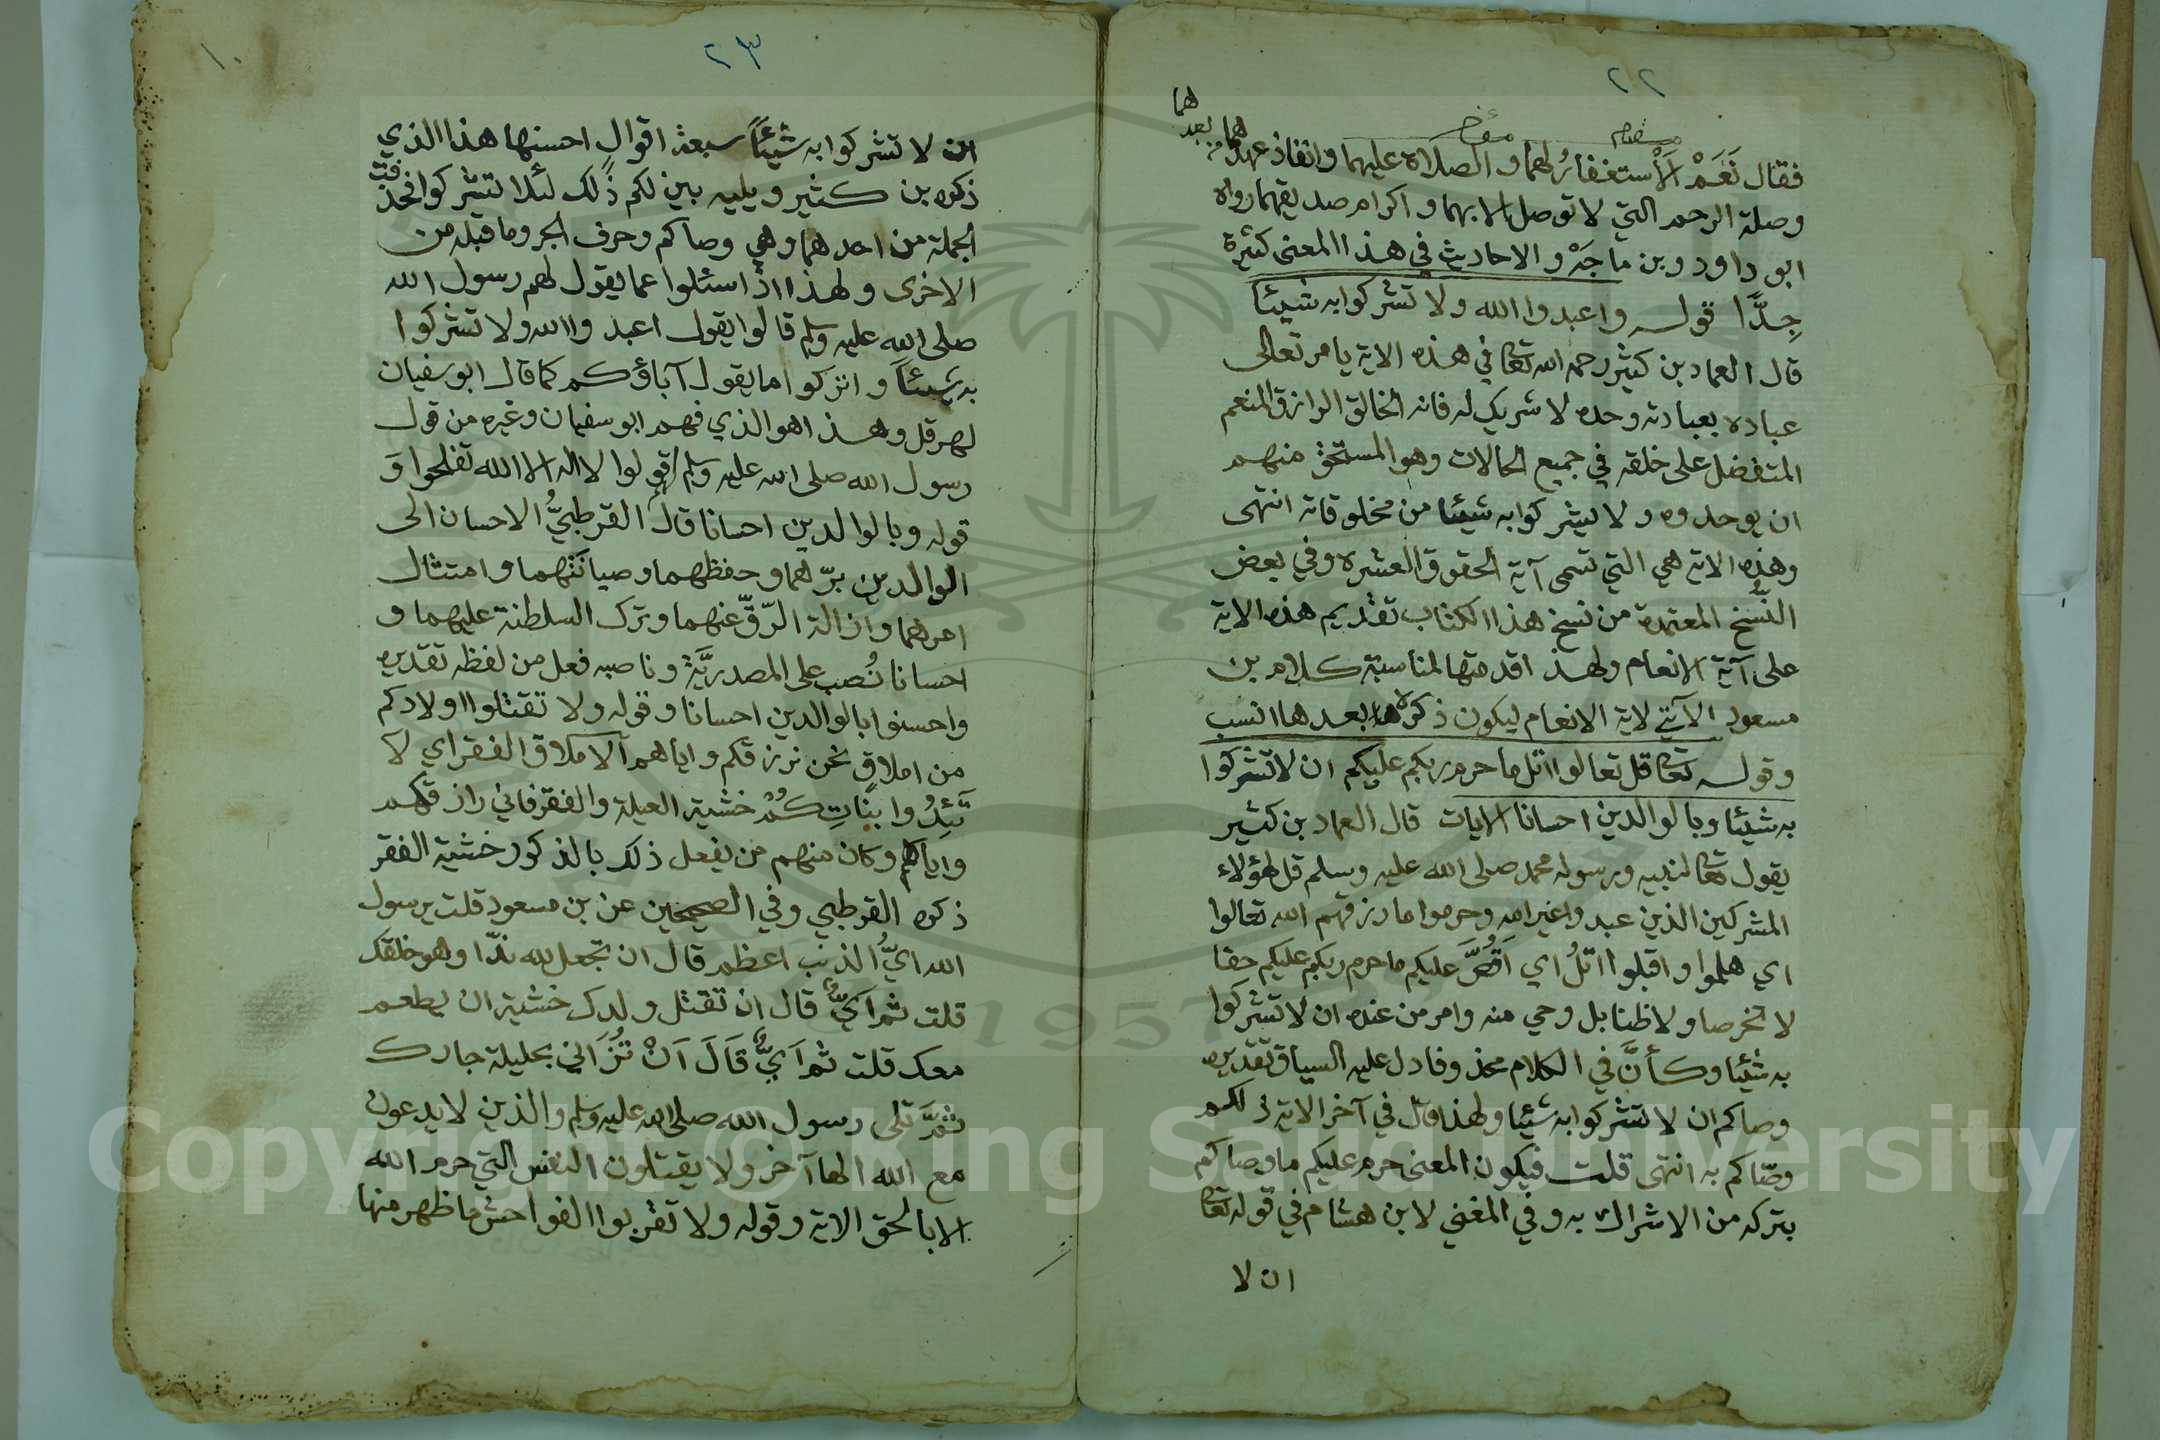 ٢٢
مقدم مؤخر
هما
بعد
فقال نَعَمْ الاستغفارُ لهما والصلاة عليهما وانفاذ عهدهما من
وصلة الرحم التي لا توصل الا بهما واكرام صديقهما رواه
ابو داود وبن ماجَهْ والاحاديث في هذا المعنى كثيرة
جِدًّا قوله واعبدوا الله ولا تشركوا به شيئا
قال العماد بن كثير رحمه الله تعا في هذه الاية يامر تعالى
عباده بعبادته وحده لا شريك له فانه الخالق الرازق المنعم
المتفضل على خلقه في جميع الحالات وهو المستحق منهم
ان يوحدوه ولا يشركوا به شيئا من مخلوقاته انتهى
وهذه الاية هي التي تسمى آية الحقوق العشره وفي بعض
النُّسَخِ المعتمدة من نسخ هذا الكتاب تقديم هذه الاية
على آية الانعام ولهذا قدمتها لمناسبة كلام بن
مسعود الآتي لاية الانعام ليكون ذكره بعدها انسب
وقوله تعا قل تعالوا اتل ما حرم ربكم عليكم ان لا تشركوا
به شيئا وبالوالدين احسانا الايات قال العماد بن كثير
يقول تعا لنبيه ورسوله محمد صلى الله عليه وسلم قل لهؤلاء
المشركين الذين عبدوا غير الله وحرموا ما رزقهم الله تعالوا
اي هلموا واقبلوا اتلُ اي اَقُصُّ عليكم ما حرم ربكم عليكم حقا
لا تخرصا ولا ظنا بل وحي منه وامر من عنده ان لا تشركوا
به شيئا وكأنَّ في الكلام محذوفا دل عليه السياق تقديره
وصاكم ان لا تشركوا به شيئا ولهذا قال في آخر الاية ذلكم
وصّاكم به انتهى قلت فيكون المعنى حرم عليكم ما وصاكم
بتركه من الاشراك به وفي المغني لابن هشام في قوله تعا
ان لا
٢٣
١٠
ان لا تشركوا به شيئاً سبعة اقوال احسنها هذا الذي
ذكره بن كثير ويليه بين لكم ذلك لئلا تشركوا فحذفت
الجملة من احدهما وهي وصاكم وحرف الجر وما قبله من
الاخرى ولهذا اذا سئلوا عما يقول لهم رسول الله
صلى الله عليه وسلم قالوا يقول اعبدوا الله ولا تشركوا
به شيئاً واتركوا ما يقول آباؤكم كما قال ابو سفيان
لهرقل وهذا هو الذي فهم ابو سفيان وغيره من قول
رسول الله صلى الله عليه وسلم قولوا لا اله الا الله تفلحوا وَ
قوله وبالوالدين احسانا قال القرطبيُّ الاحسان الى
الوالدين برّهما وحفظهما وصيانتهما وامتثال
امرهما وازالة الرّقّ عنهما وترك السلطنة عليهما و
احسانا نُصب على المصدريَّة وناصبه فعل من لفظه تقديره
واحسنوا بالوالدين احسانا وقوله ولا تقتلوا اولادكم
من املاق نحن نرزقكم واياهم الاملاق الفقر اي لا
تَئِدُوا بناتِكُمْ خشية العيلة والفقر فاني رازقكهم
واياهم وكان منهم من يفعل ذلك بالذكور خشية الفقر
ذكره القرطبي وفي الصحيحين عن بن مسعود قلت يرسول
الله ايُّ الذنب اعظم قال ان تجعل لله ندّا وهو خلقك
قلت ثم اَيٌّ قال ان تقتل ولدك خشية ان يطعم
معك قلت ثم اَيٌّ قَالَ اَنْ تُزَاني بحليلة جارك
ثمَّ تلى رسول الله صلى الله عليه وسلم والذين لا يدعون
مع الله الها آخر ولا يقتلون النفس التي حرم الله
الا بالحق الاية وقوله ولا تقربوا الفواحش ما ظهر منها
1957
Copyright © King Saud University